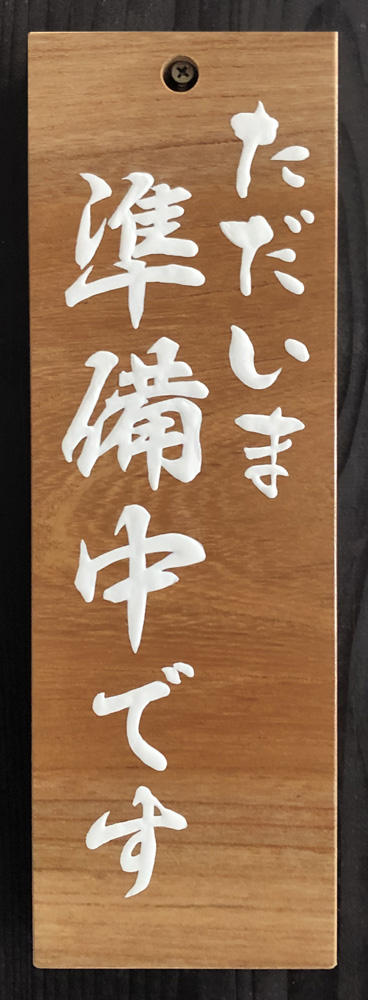 ただいま
準備中です